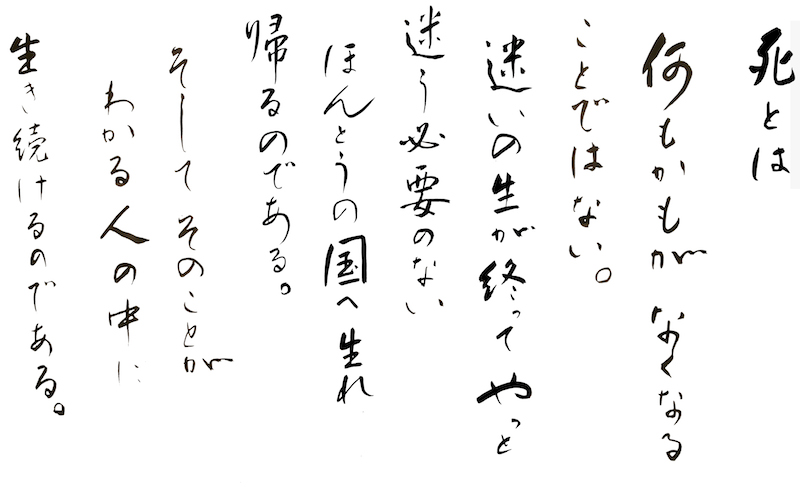 死とは
何もかもが なくなる
ことではない。
迷いの生が終って やっと
迷う必要のない
ほんとうの国へ生れ
帰るのである。
そして そのことが
わかる人の中に
生き続けるのである。